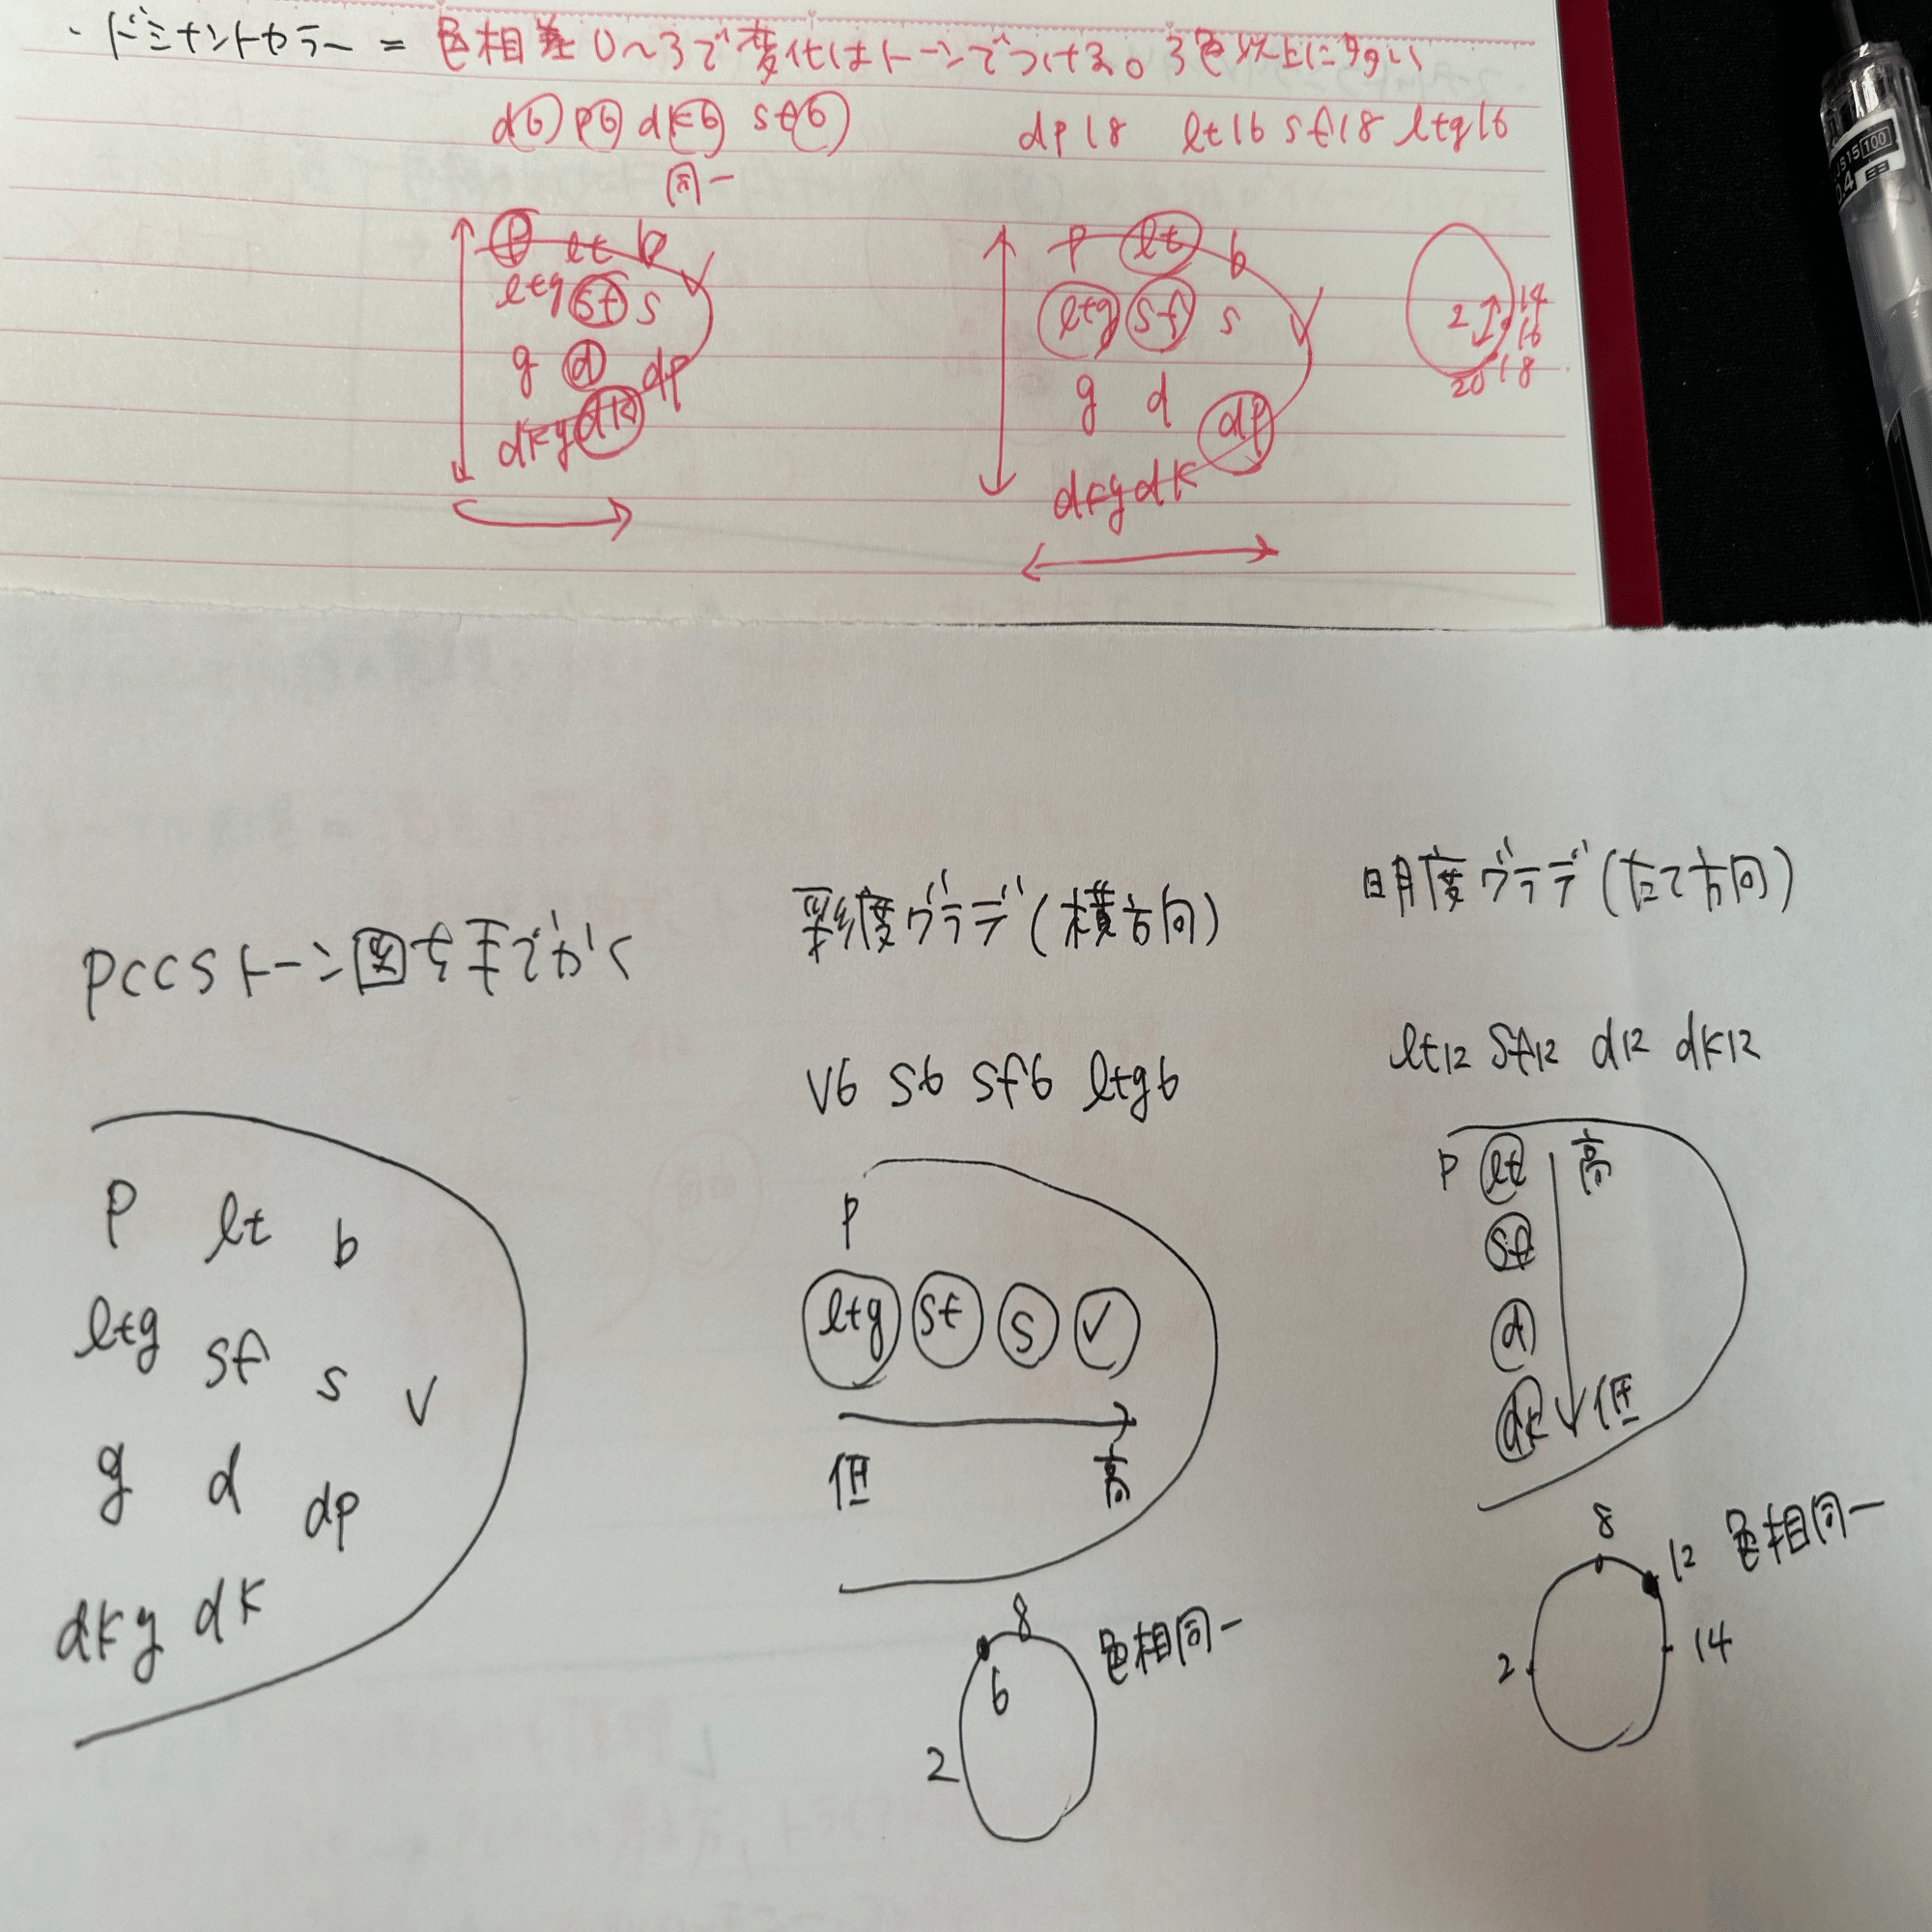 ・ドミナントカラー = 色相差0〜3で変化はトーンでつける。3色以上に多い
d6 p6 dk6 sf6
dp18 lt16 sf18 ltg16
同一
p lt b
ltg sf s
v
g d dp
dkg dk
p lt b
ltg sf s
v
g d dp
dkg dk
2 14
16
20 18
JS15 100
0.4
PCCSトーン図を手でかく
p lt b
ltg sf s v
g d dp
dkg dk
彩度グラデ(横方向)
v6 s6 sf6 ltg6
p
ltg sf s v
低 高
8
6
2
色相同一
明度グラデ(たて方向)
lt12 sf12 d12 dk12
p lt 高
sf
d
dk 低
8
12 色相同一
2 14